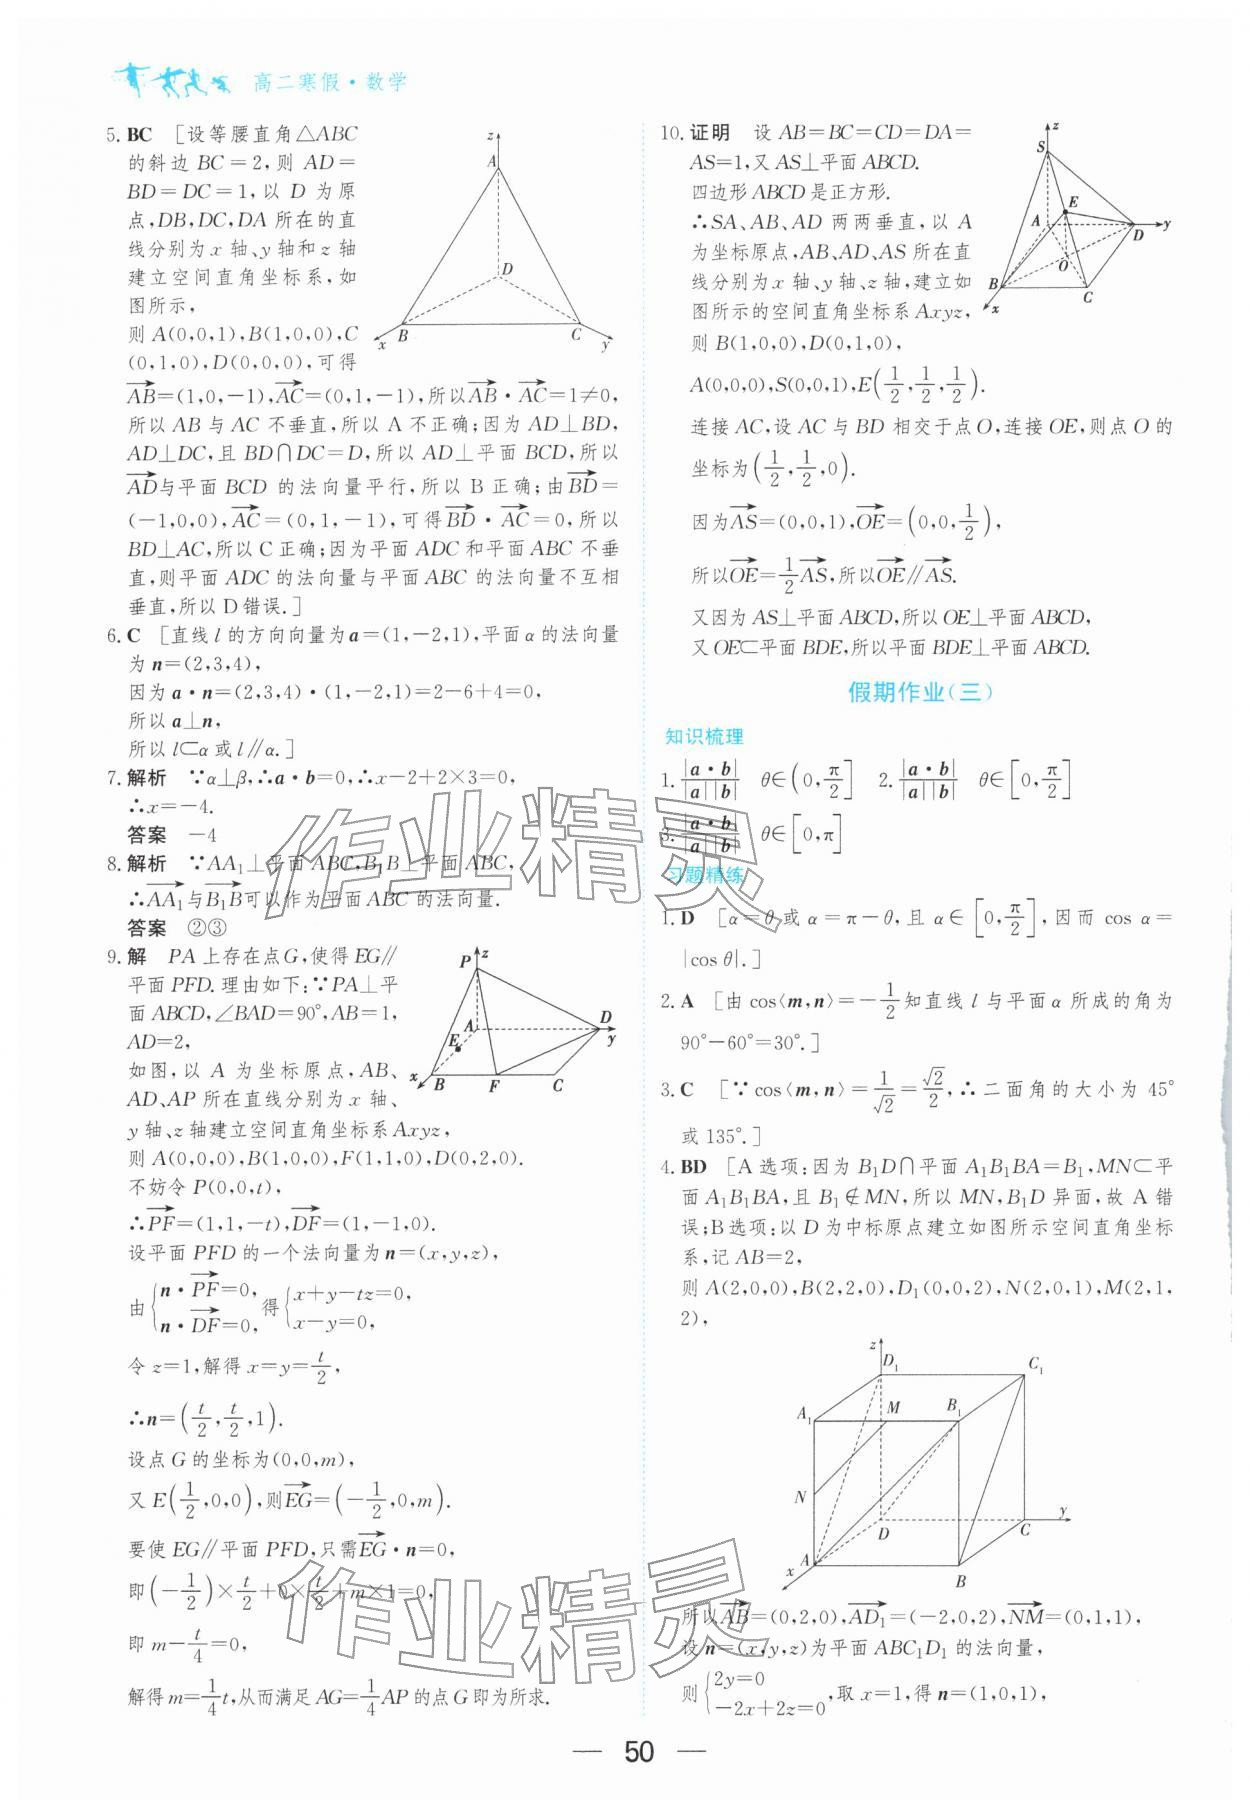 高二寒假·数学
5. BC [设等腰直角△ABC
的斜边 BC=2,则 AD=
BD=DC=1,以 D 为原
点,DB,DC,DA 所在的直
线分别为 x 轴、y 轴和 z 轴
建立空间直角坐标系,如
图所示,
则 A(0,0,1),B(1,0,0),C
(0,1,0),D(0,0,0),可得
z
A
D
B
C
x
y
$\overrightarrow{AB}$=(1,0,-1),$\overrightarrow{AC}$=(0,1,-1),所以$\overrightarrow{AB}$·$\overrightarrow{AC}$=1≠0,
所以 AB 与 AC 不垂直,所以 A 不正确;因为 AD⊥BD,
AD⊥DC,且 BD∩DC=D,所以 AD⊥平面 BCD,所以
$\overrightarrow{AD}$与平面 BCD 的法向量平行,所以 B 正确;由$\overrightarrow{BD}$=
(-1,0,0),$\overrightarrow{AC}$=(0,1,-1),可得$\overrightarrow{BD}$·$\overrightarrow{AC}$=0,所以
BD⊥AC,所以 C 正确;因为平面 ADC 和平面 ABC 不垂
直,则平面 ADC 的法向量与平面 ABC 的法向量不互相
垂直,所以 D 错误.]
6. C [直线 l 的方向向量为 a=(1,-2,1),平面 α 的法向量
为 n=(2,3,4),
因为 a·n=(2,3,4)·(1,-2,1)=2-6+4=0,
所以 a⊥n,
所以 l⊂α 或 l∥α.]
7. 解析 ∵α⊥β,∴a·b=0,∴x-2+2×3=0,
∴x=-4.
答案 -4
8. 解析 ∵AA₁⊥平面 ABC,B₁B⊥平面 ABC,
∴$\overrightarrow{AA_1}$与$\overrightarrow{B_1B}$可以作为平面 ABC 的法向量.
答案 ②③
9. 解 PA 上存在点 G,使得 EG∥
平面 PFD.理由如下:∵PA⊥平
面 ABCD,∠BAD=90°,AB=1,
AD=2,
如图,以 A 为坐标原点,AB、
AD、AP 所在直线分别为 x 轴、
y 轴、z 轴建立空间直角坐标系 Axyz,
P
z
A
D
y
E
x
B
F
C
则 A(0,0,0),B(1,0,0),F(1,1,0),D(0,2,0).
不妨令 P(0,0,t),
∴$\overrightarrow{PF}$=(1,1,-t),$\overrightarrow{DF}$=(1,-1,0).
设平面 PFD 的一个法向量为 n=(x,y,z),
由$\begin{cases}n·\overrightarrow{PF}=0,\\n·\overrightarrow{DF}=0,\end{cases}$得$\begin{cases}x+y-tz=0,\\x-y=0,\end{cases}$
令 z=1,解得 x=y=$\frac{t}{2}$,
∴n=($\frac{t}{2}$,$\frac{t}{2}$,1).
设点 G 的坐标为(0,0,m),
又 E($\frac{1}{2}$,0,0),则$\overrightarrow{EG}$=(-$\frac{1}{2}$,0,m).
要使 EG∥平面 PFD,只需$\overrightarrow{EG}$·n=0,
即(-$\frac{1}{2}$)×$\frac{t}{2}$+0×$\frac{t}{2}$+m×1=0,
即 m-$\frac{t}{4}$=0,
解得 m=$\frac{1}{4}$t,从而满足 AG=$\frac{1}{4}$AP 的点 G 即为所求.
10. 证明 设 AB=BC=CD=DA=
AS=1,又 AS⊥平面 ABCD.
四边形 ABCD 是正方形.
∴SA、AB、AD 两两垂直,以 A
为坐标原点,AB、AD、AS 所在直
线分别为 x 轴、y 轴、z 轴,建立如
图所示的空间直角坐标系 Axyz,
则 B(1,0,0),D(0,1,0),
z
S
E
A
D
y
O
B
C
x
A(0,0,0),S(0,0,1),E($\frac{1}{2}$,$\frac{1}{2}$,$\frac{1}{2}$).
连接 AC,设 AC 与 BD 相交于点 O,连接 OE,则点 O 的
坐标为($\frac{1}{2}$,$\frac{1}{2}$,0).
因为$\overrightarrow{AS}$=(0,0,1),$\overrightarrow{OE}$=(0,0,$\frac{1}{2}$),
所以$\overrightarrow{OE}$=$\frac{1}{2}$$\overrightarrow{AS}$,所以$\overrightarrow{OE}$∥$\overrightarrow{AS}$.
又因为 AS⊥平面 ABCD,所以 OE⊥平面 ABCD,
又 OE⊂平面 BDE,所以平面 BDE⊥平面 ABCD.
假期作业(三)
知识梳理
1. $\frac{|a·b|}{|a||b|}$ θ∈(0,$\frac{π}{2}$] 2. $\frac{|a·b|}{|a||b|}$ θ∈[0,$\frac{π}{2}$]
3. $\frac{|a·b|}{|a||b|}$ θ∈[0,π]
习题精练
1. D [α=θ 或 α=π-θ,且 α∈[0,$\frac{π}{2}$],因而 cos α=
|cos θ|.]
2. A [由 cos⟨m,n⟩=-$\frac{1}{2}$知直线 l 与平面 α 所成的角为
90°-60°=30°.]
3. C [∵cos⟨m,n⟩=$\frac{1}{\sqrt{2}}$=$\frac{\sqrt{2}}{2}$,∴二面角的大小为 45°
或 135°.]
4. BD [A 选项:因为 B₁D∩平面 A₁B₁BA=B₁,MN⊂平
面 A₁B₁BA,且 B₁∉MN,所以 MN,B₁D 异面,故 A 错
误;B 选项:以 D 为中标原点建立如图所示空间直角坐标
系,记 AB=2,
则 A(2,0,0),B(2,2,0),D₁(0,0,2),N(2,0,1),M(2,1,
2),
z
D₁
C₁
A₁
M
B₁
N
D
C
y
A
x
B
所以$\overrightarrow{AB}$=(0,2,0),$\overrightarrow{AD_1}$=(-2,0,2),$\overrightarrow{NM}$=(0,1,1),
设 n=(x,y,z)为平面 ABC₁D₁ 的法向量,
则$\begin{cases}2y=0\\-2x+2z=0\end{cases}$,取 x=1,得 n=(1,0,1),
— 50 —
作业精灵
作业精灵